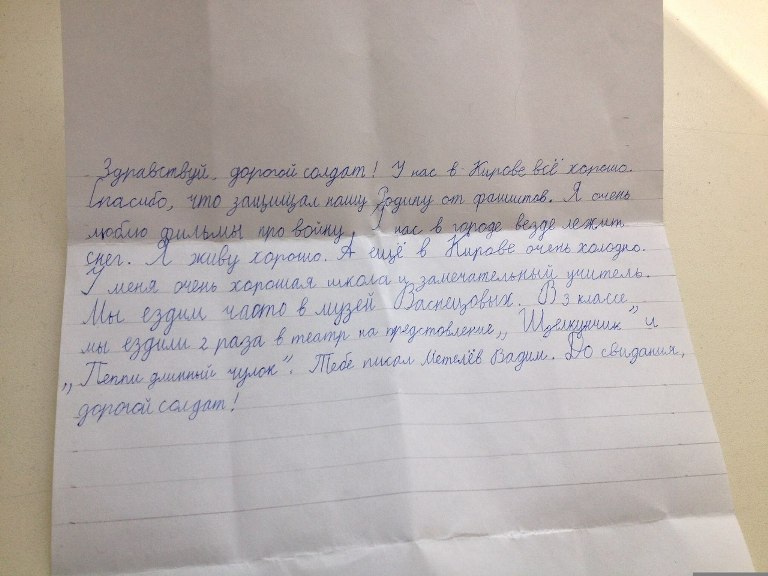 Здравствуй, дорогой солдат! У нас в Кирове всё хорошо.
Спасибо, что защищал нашу Родину от фашистов. Я очень
люблю фильмы про войну. У нас в городе везде лежит
снег. Я живу хорошо. А ещё в Кирове очень холодно.
У меня очень хорошая школа и замечательный учитель.
Мы ездим часто в музей Васнецовых. В 3 классе
мы ездили 2 раза в театр на представление „Щелкунчик" и
„Пеппи длинный чулок". Тебе писал Метелёв Вадим. До свидания,
дорогой солдат!